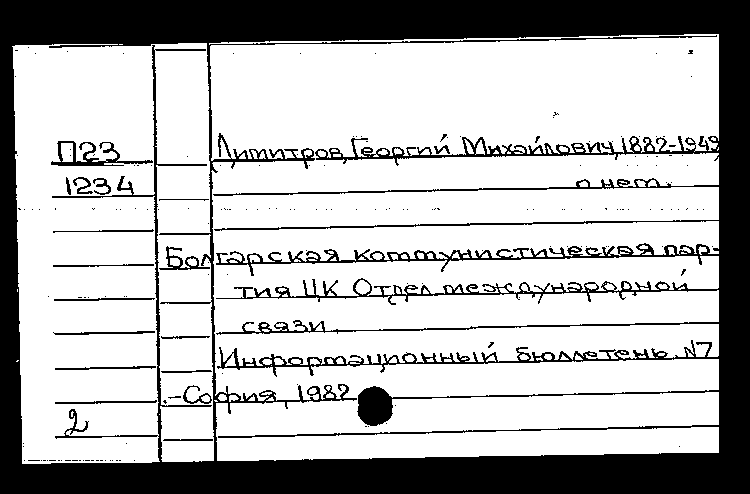 П23 Димитров, Георгий Михайлович, 1882-1949
1234 о нет.
Болгарская коммунистическая пар-
тия ЦК Отдел международной
связи.
Информационный бюллетень N7
.-София, 1982
2